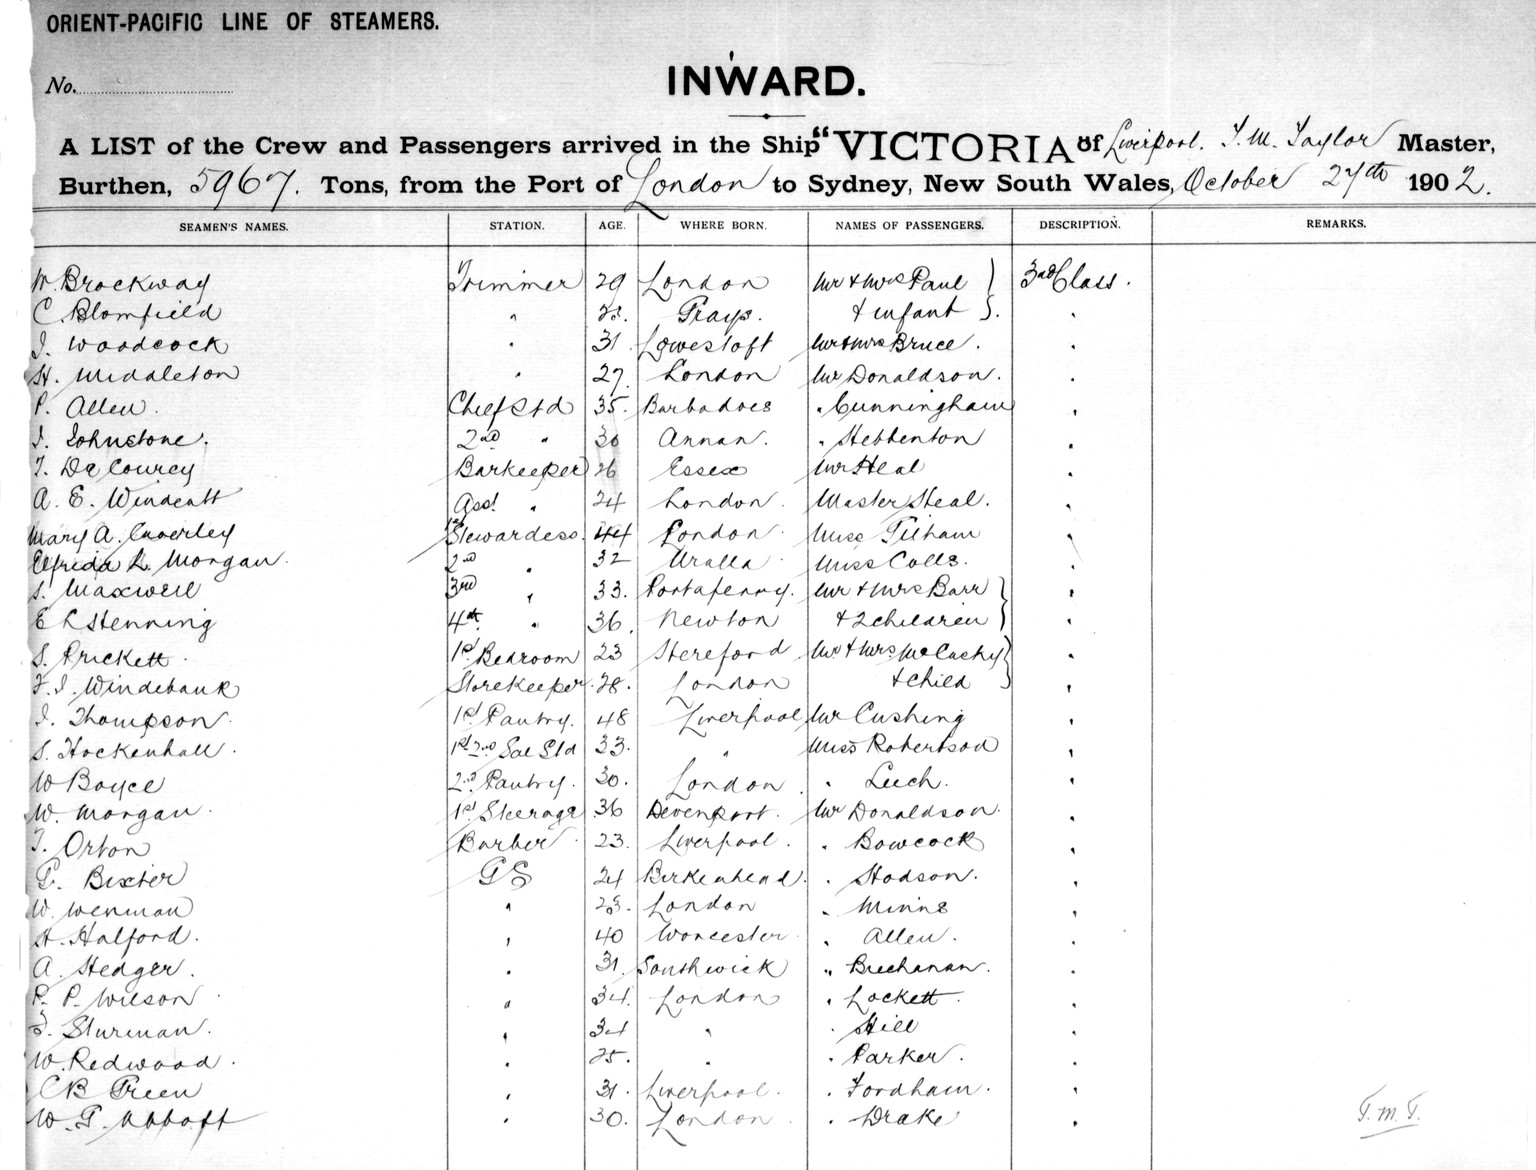 ORIENT-PACIFIC LINE OF STEAMERS.
INWARD.
No.
A LIST of the Crew and Passengers arrived in the Ship "VICTORIA" of Liverpool. T. M. Taylor Master,
Burthen, 5967. Tons, from the Port of London to Sydney, New South Wales, October 27th 1902.
SEAMEN'S NAMES. STATION. AGE. WHERE BORN. NAMES OF PASSENGERS. DESCRIPTION. REMARKS.
W. Brockway Trimmer 29 London Mr & Mrs Paul } 3rd Class.
C. Blomfield " Grays. & infant }. "
J. Woodcock " 31 Lowestoft Mr & Mrs Bruce. "
H. Middleton " 27. London Mr Donaldson. "
P. Allen. Chief Std 35. Barbadoes " Cunningham "
J. Johnstone. 2nd " 30 Annan. " Hebbenton "
T. De Courcy Barkeeper 26 Essex Mr Heal "
A. E. Windeatt Asst " 24 London. Master Heal. "
Mary A. Caverley 1st Stewardess. 44 London. Miss Titham "
Elfrida L. Morgan. 2nd " 32 Uralla. Miss Colls. "
S. Maxwell 3rd " 33. Portaferry. Mr & Mrs Barr } "
E L Henning 4th " 36. Newton & 2 children } "
S. Prickett. 1st Bedroom 23 Hereford Mr & Mrs McCachy } "
F. J. Windebank Storekeeper. 28. London & child } "
J. Thompson. 1st Pantry. 48 Liverpool Mr Cushing "
S. Hockenhall. 1st 2nd Sal Std 33. " Miss Robertson "
W Boyce 2nd Pantry. 30. London. " Luch. "
W. Morgan. 1st Steerage 36 Devenport. Mr Donaldson. "
T. Orton Barber 23. Liverpool. " Bowcock "
G. Bixter G S 24 Birkenhead. " Hodson. "
W. Wenman " 23. London " Minns "
H. Halford. " 40 Worcester. " Allen. "
A. Hedger. " 31. Southwick " Buchanan. "
P. P. Wilson. " 34. London " Lockett. "
F. Sturman. " 34 " " Hill "
W. Redwood. " 25. " " Parker. "
C B Green " 31. Liverpool. " Fordham. "
W. G. Abbott " 30. London. " Drake "
T. M. T.